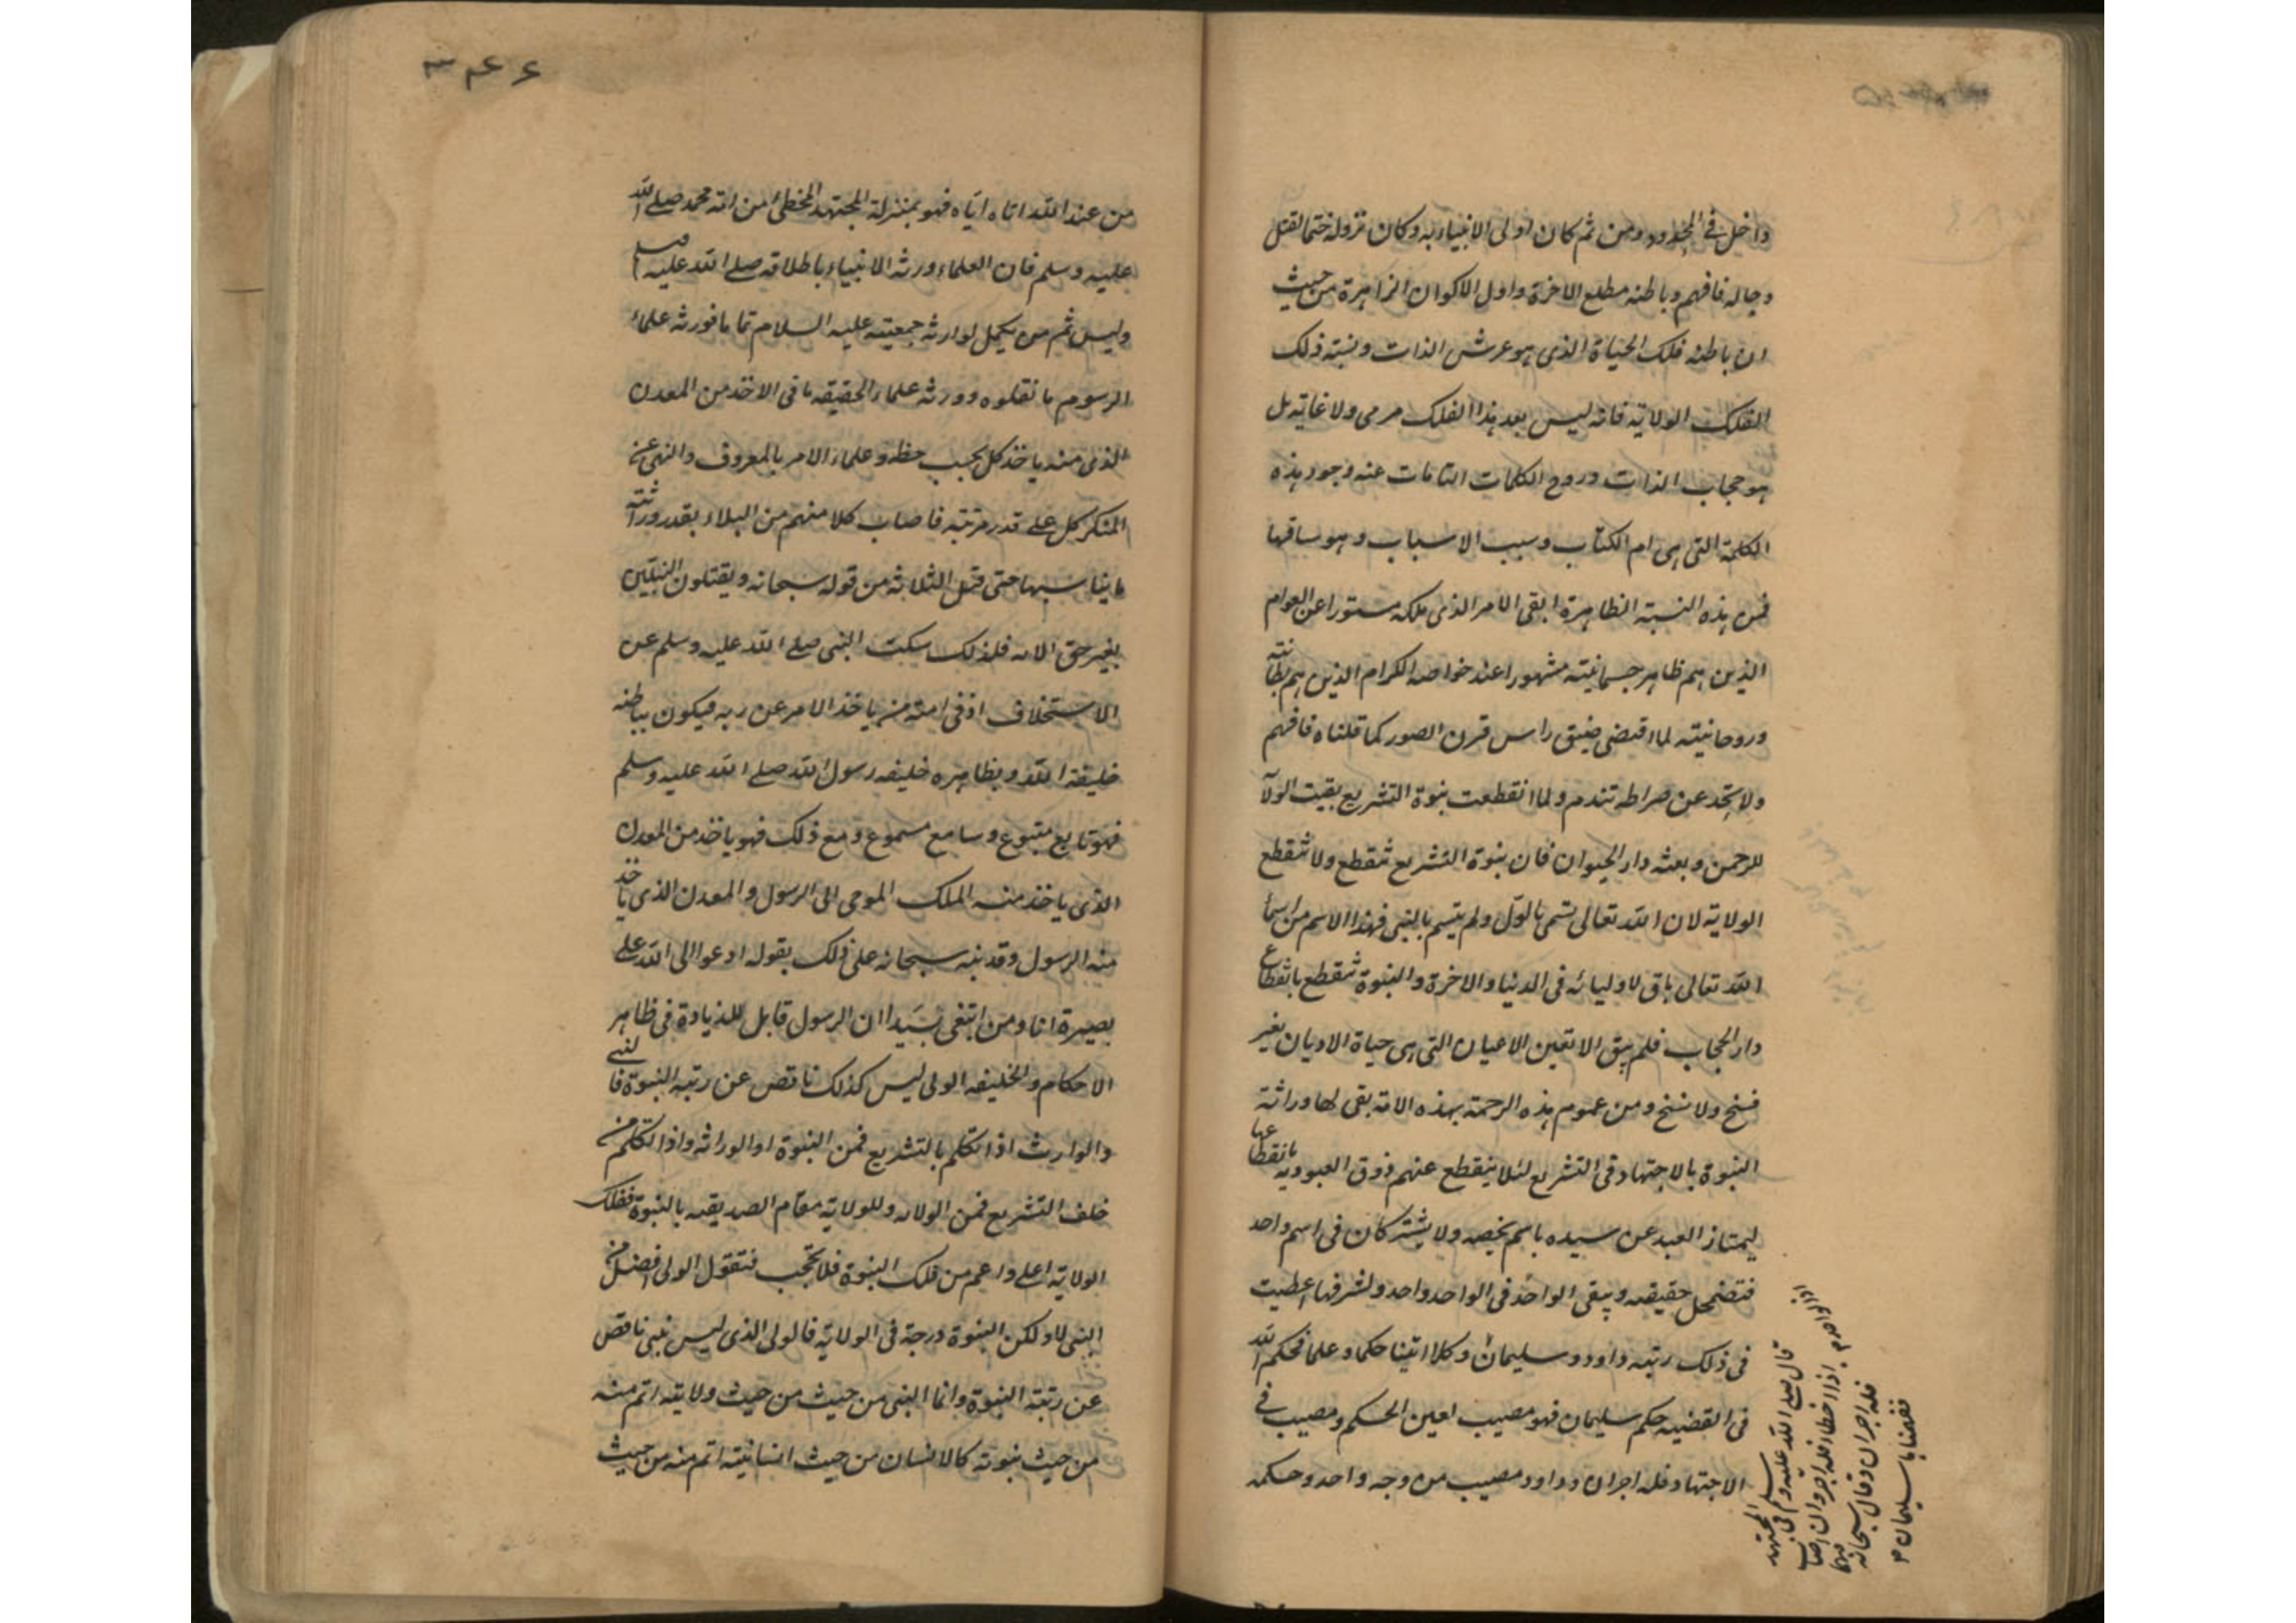 داخل فى الحدود ومن ثم كان اولى الانبياء به وكان نزوله ختما لقتل
دجاله فافهم وباطنه مطلع الاخرة واول الاكوان الزاهرة من حيث
ان باطنه فلك الحياة الذى هو عرش الذات ونسبته ذلك
الفلك الولاية فانه ليس بعد هذا الفلك مرمى ولا غاية بل
هو حجاب الذات وروح الكلمات التامات عنه وجود هذه
الكلمة التى هى ام الكتاب وسبب الاسباب وهو ساقها
فمن هذه النسبة الظاهرة ابقى الامر الذى ملكه مستورا عن العوام
الذين هم ظاهر جسمانيته مشهورا عند خواصه الكرام الذين هم بطانته
وروحانيته لما اقتضى ضيق راس قرن الصور كما قلناه فافهم
ولا تحد عن صراطه تندم ولما انقطعت نبوة التشريع بقيت الولآ
للرحمن وبعثه دار الحيوان فان نبوة التشريع تنقطع ولا تنقطع
الولاية لان الله تعالى تسمى بالولى ولم يتسم بالنبى فهذا الاسم من اسمأ
الله تعالى باق لاوليائه فى الدنيا والاخرة والنبوة تنقطع بانقطاع
دار الحجاب فلم يبق الا تعين الاعيان التى هى حياة الاديان بغير
فسخ ولا نسخ ومن عموم هذه الرحمة بهذه الامة بقى لها وراثة
النبوة بالاجتهاد فى التشريع لئلا ينقطع عنهم ذوق العبودية بانقطاعها
ليمتاز العبد عن سيده باسم يخصه ولا يشتركان فى اسم واحد
فتضمحل حقيقه ويبقى الواحد فى الواحد واحد ولشرفها اعطيت
فى ذلك رتبه داود وسليمان وكلا اتينا حكما وعلما فحكم الله
فى القضيه حكم سليمان فهو مصيب لعين الحكم ومصيب فى
الاجتهاد فله اجران وداود مصيب من وجه واحد وحكمه
قال صلى الله عليه وسلم فى المجتهد
اذا اخطاء فله اجر وان اصاب
فله اجران وقال سبحانه
ففهمناها سليمان
٣٤٦
من عند الله اتاه اياه فهو بمنزلة المجتهد المخطى من امة محمد صلى الله
عليه وسلم فان العلماء ورثه الانبياء باطلاقه صلى الله عليه وسلم
وليس ثم من يكمل لوارثه جمعيته عليه السلام تماما فورثه علماء
الرسوم ما نقلوه وورثه علماء الحقيقه ما فى الاخذ من المعدن
الذى منه ياخذ كل بحسب حظه وعلماء الامر بالمعروف والنهى عن
المنكر كل على قدر مرتبته فاصاب كلا منهم من البلاء بقدر وراثته
ما يناسبها حتى قتل الثلاثه من قوله سبحانه ويقتلون النبيين
بغير حق الايه فلذلك سكت النبى صلى الله عليه وسلم عن
الاستخلاف اذ فى امته من ياخذ الامر عن ربه فيكون بباطنه
خليفة الله وبظاهره خليفه رسول الله صلى الله عليه وسلم
فهو تابع متبوع وسامع مسموع ومع ذلك فهو ياخذ من المعدن
الذى ياخذ منه الملك الموحى الى الرسول والمعدن الذى ياخذ
منه الرسول وقد نبه سبحانه على ذلك بقوله ادعوا الى الله على
بصيرة انا ومن اتبعنى بيد ان الرسول قابل للزيادة فى ظاهر
الاحكام والخليفه الولى ليس كذلك ناقص عن رتبه النبوة فالنبى
والوارث اذا تكلم بالتشريع فمن النبوة او الوراثه واذا تكلم من
خلف التشريع فمن الولايه وللولاية مقام الصديقيه بالنبوة ففلك
الولاية اعلى واعم من فلك النبوة فلا تحجب فتقول الولى افضل من
النبى لا ولكن النبوة درجة فى الولاية فالولى الذى ليس بنبى ناقص
عن رتبة النبوة وانما النبى من حيث من حيث ولايته اتم منه
من حيث نبوته كالانسان من حيث انسانيته اتم منه من حيث